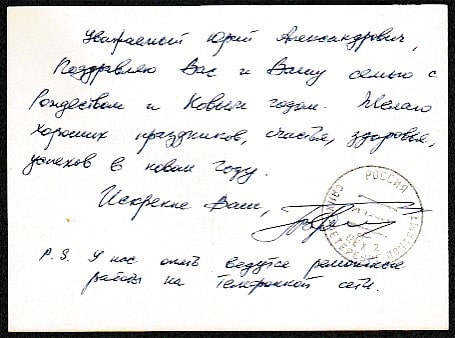 Уважаемый Юрий Александрович,
Поздравляю Вас и Вашу семью с
Рождеством и Новым годом. Желаю
хороших праздников, счастья, здоровья,
успехов в новом году.
Искренне Ваш,
P.S. У нас опять ведутся ремонтные
работы на телефонной сети.
РОССИЯ
ЦЕХ 2